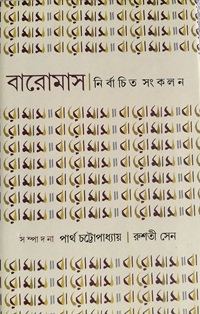 বারোমাস | নির্বাচিত সংকলন
সম্পাদনা পার্থ চট্টোপাধ্যায় | রুশতী সেন